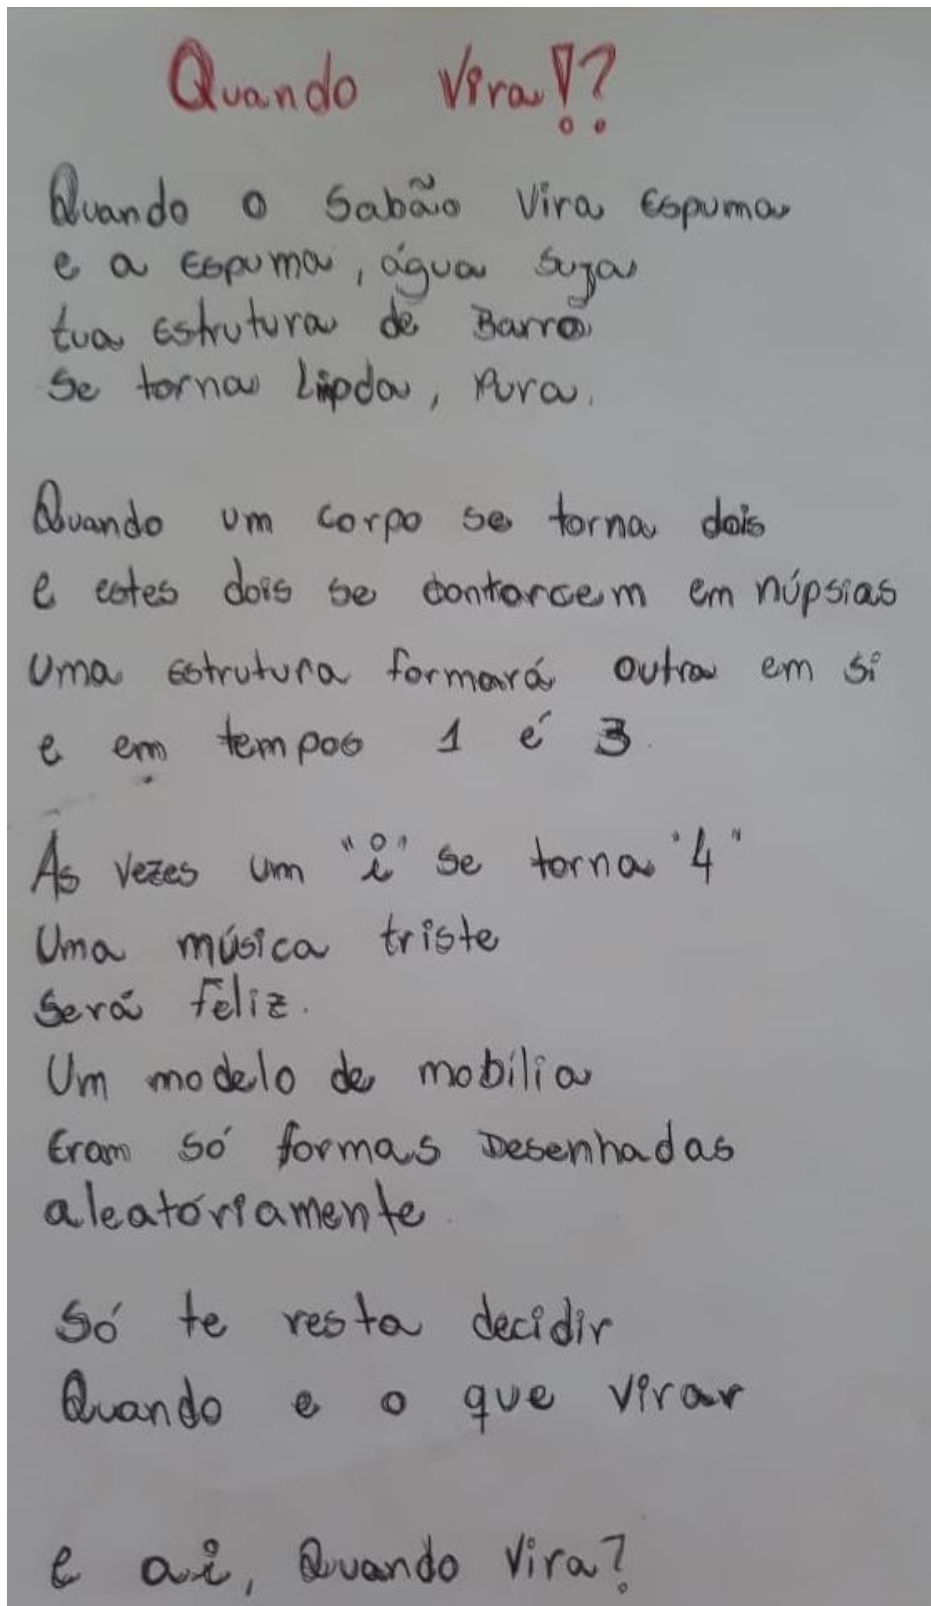 Quando Vira!?
Quando o Sabão Vira Espuma
e a Espuma, água suza
tua Estrutura de Barro
Se torna Linda, Pura.
Quando um corpo se torna dois
e estes dois se contorcem em núpsias
Uma estrutura formará outra em si
e em tempos 1 é 3.
As vezes um "i" se torna "4"
Uma música triste
Será feliz.
Um modelo de mobília
Eram só formas Desenhadas
aleatóriamente.
Só te resta decidir
Quando e o que virar
e ai, Quando Vira?